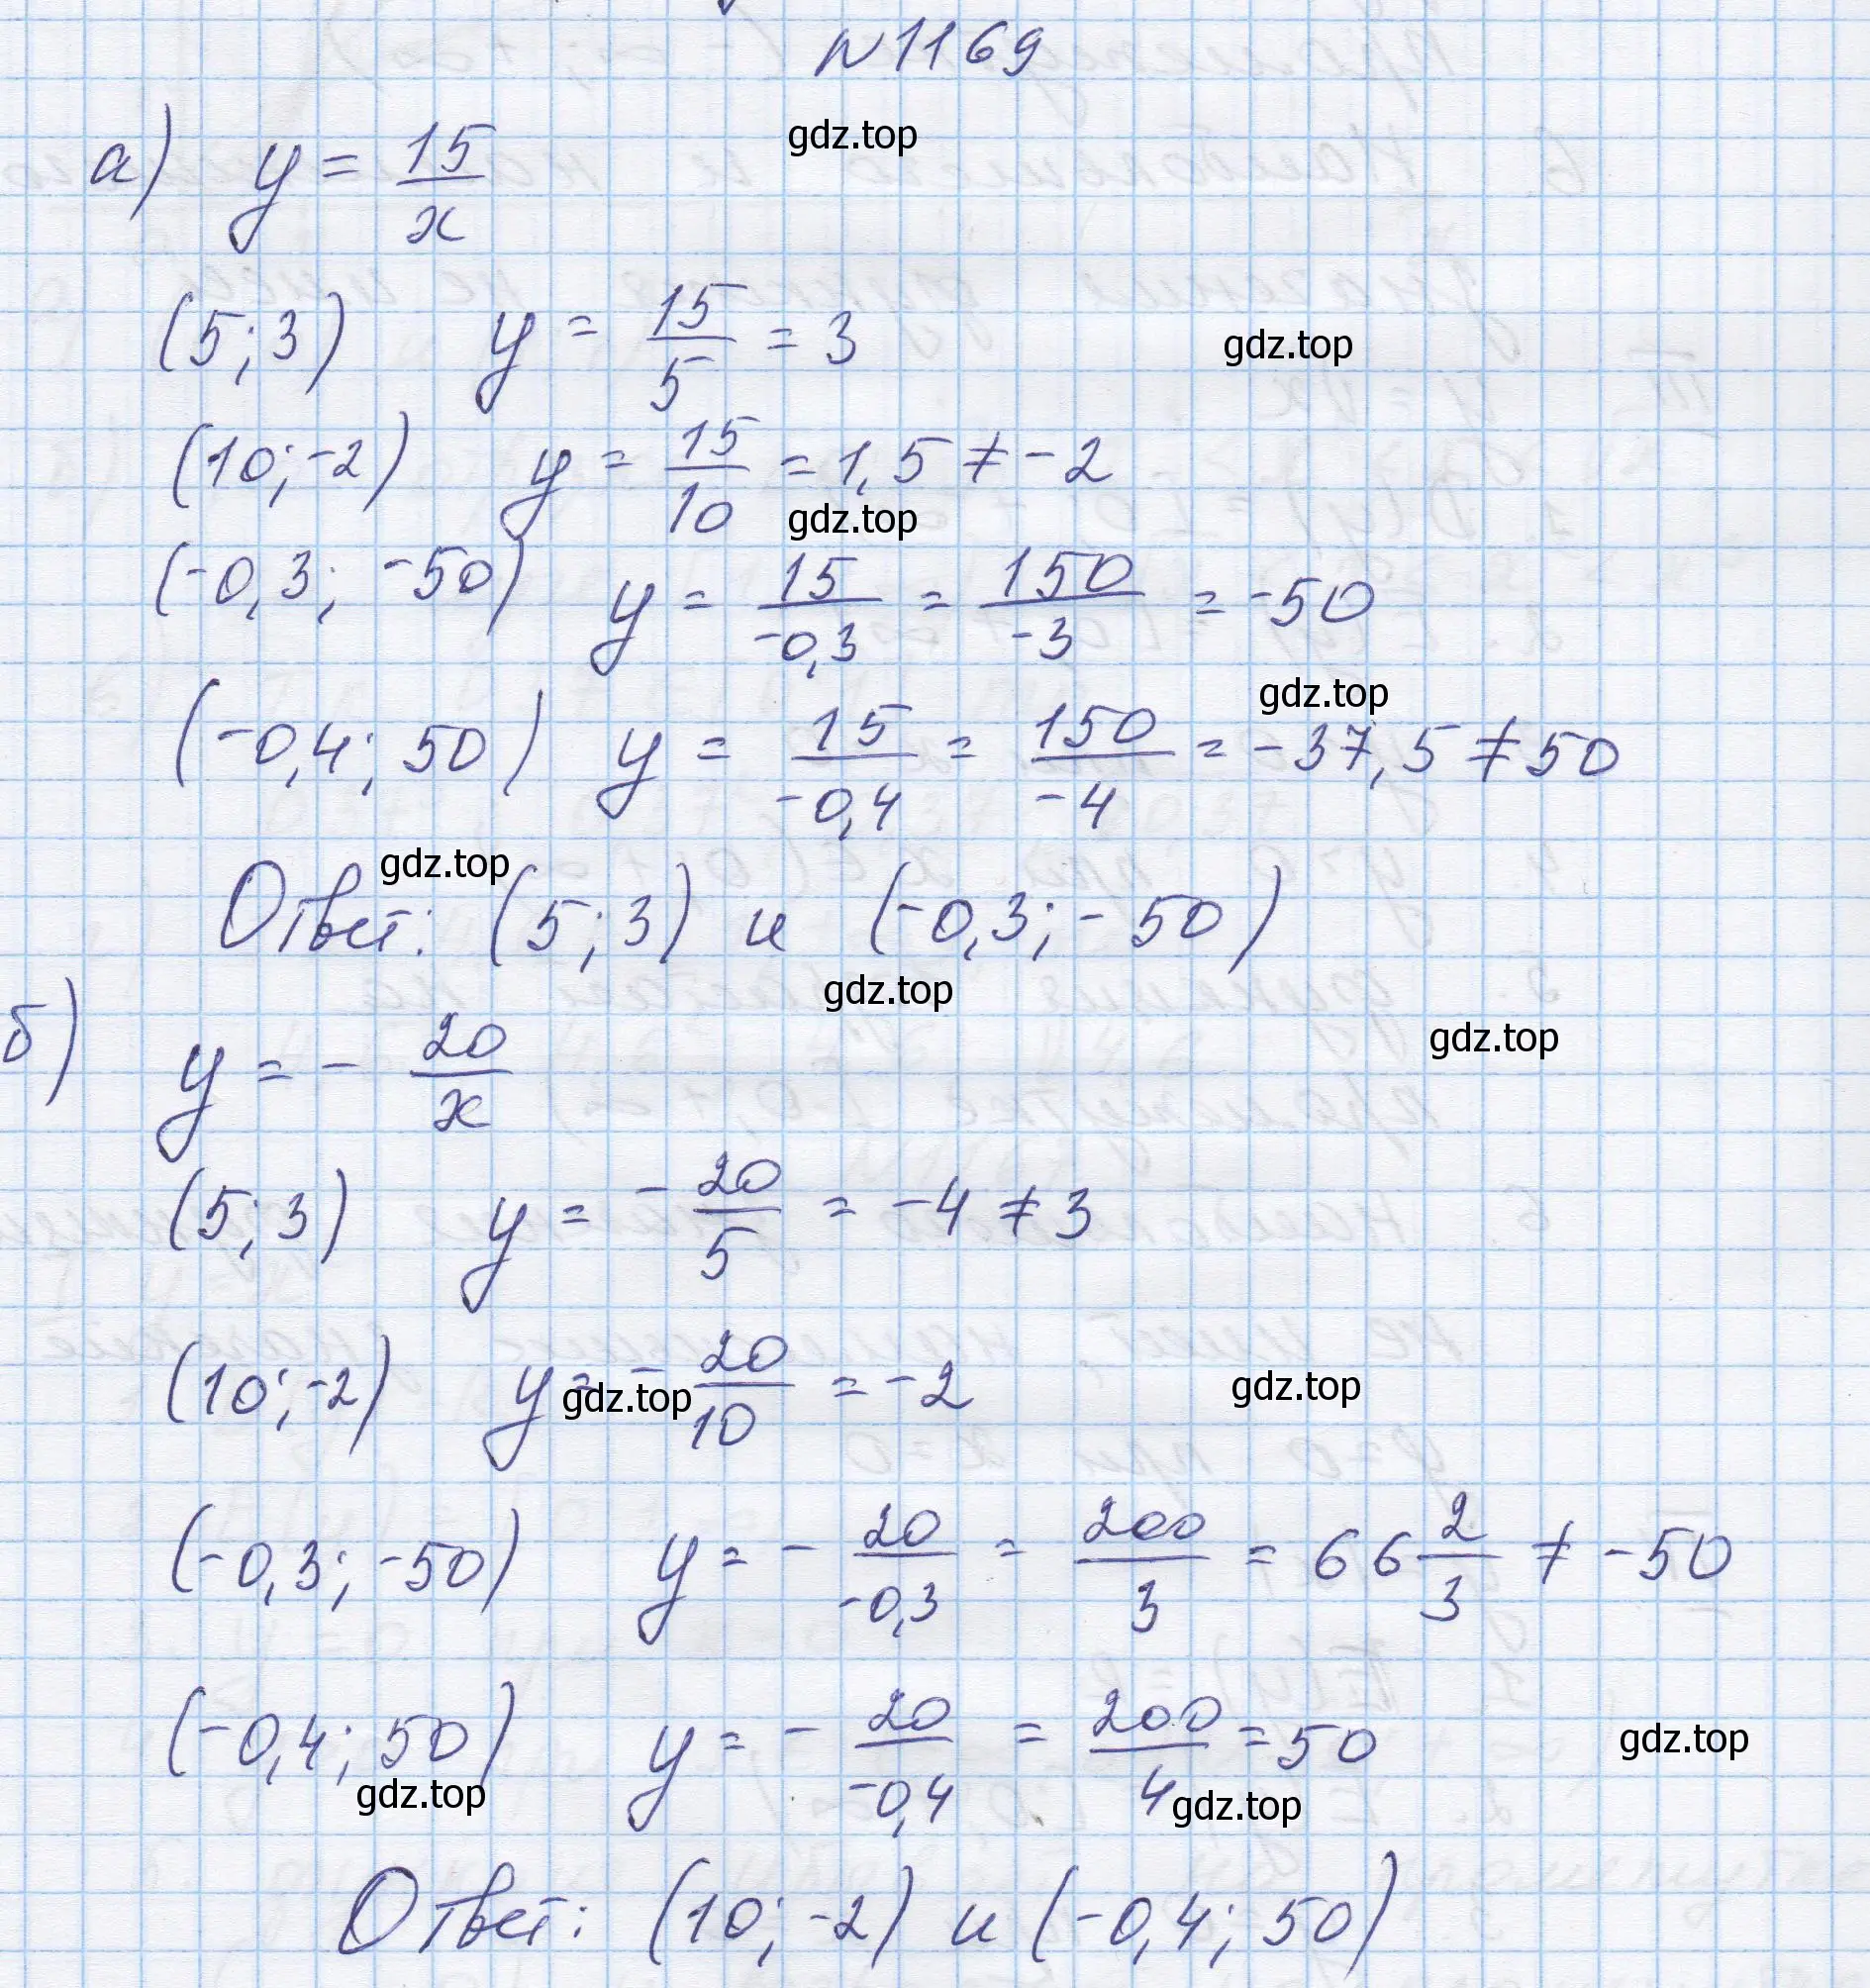 №1169
gdz.top
а) y = 15/x
(5; 3) y = 15/5 = 3
gdz.top
(10; -2) y = 15/10 = 1,5 ≠ -2
gdz.top
(-0,3; -50) y = 15/-0,3 = 150/-3 = -50
gdz.top
(-0,4; 50) y = 15/-0,4 = 150/-4 = -37,5 ≠ 50
gdz.top
Ответ: (5; 3) и (-0,3; -50)
gdz.top
gdz.top
б) y = - 20/x
(5; 3) y = - 20/5 = -4 ≠ 3
(10; -2) y = - 20/10 = -2
gdz.top
gdz.top
(-0,3; -50) y = - 20/-0,3 = 200/3 = 66 2/3 ≠ -50
(-0,4; 50) y = - 20/-0,4 = 200/4 = 50
gdz.top
gdz.top
gdz.top
Ответ: (10; -2) и (-0,4; 50)